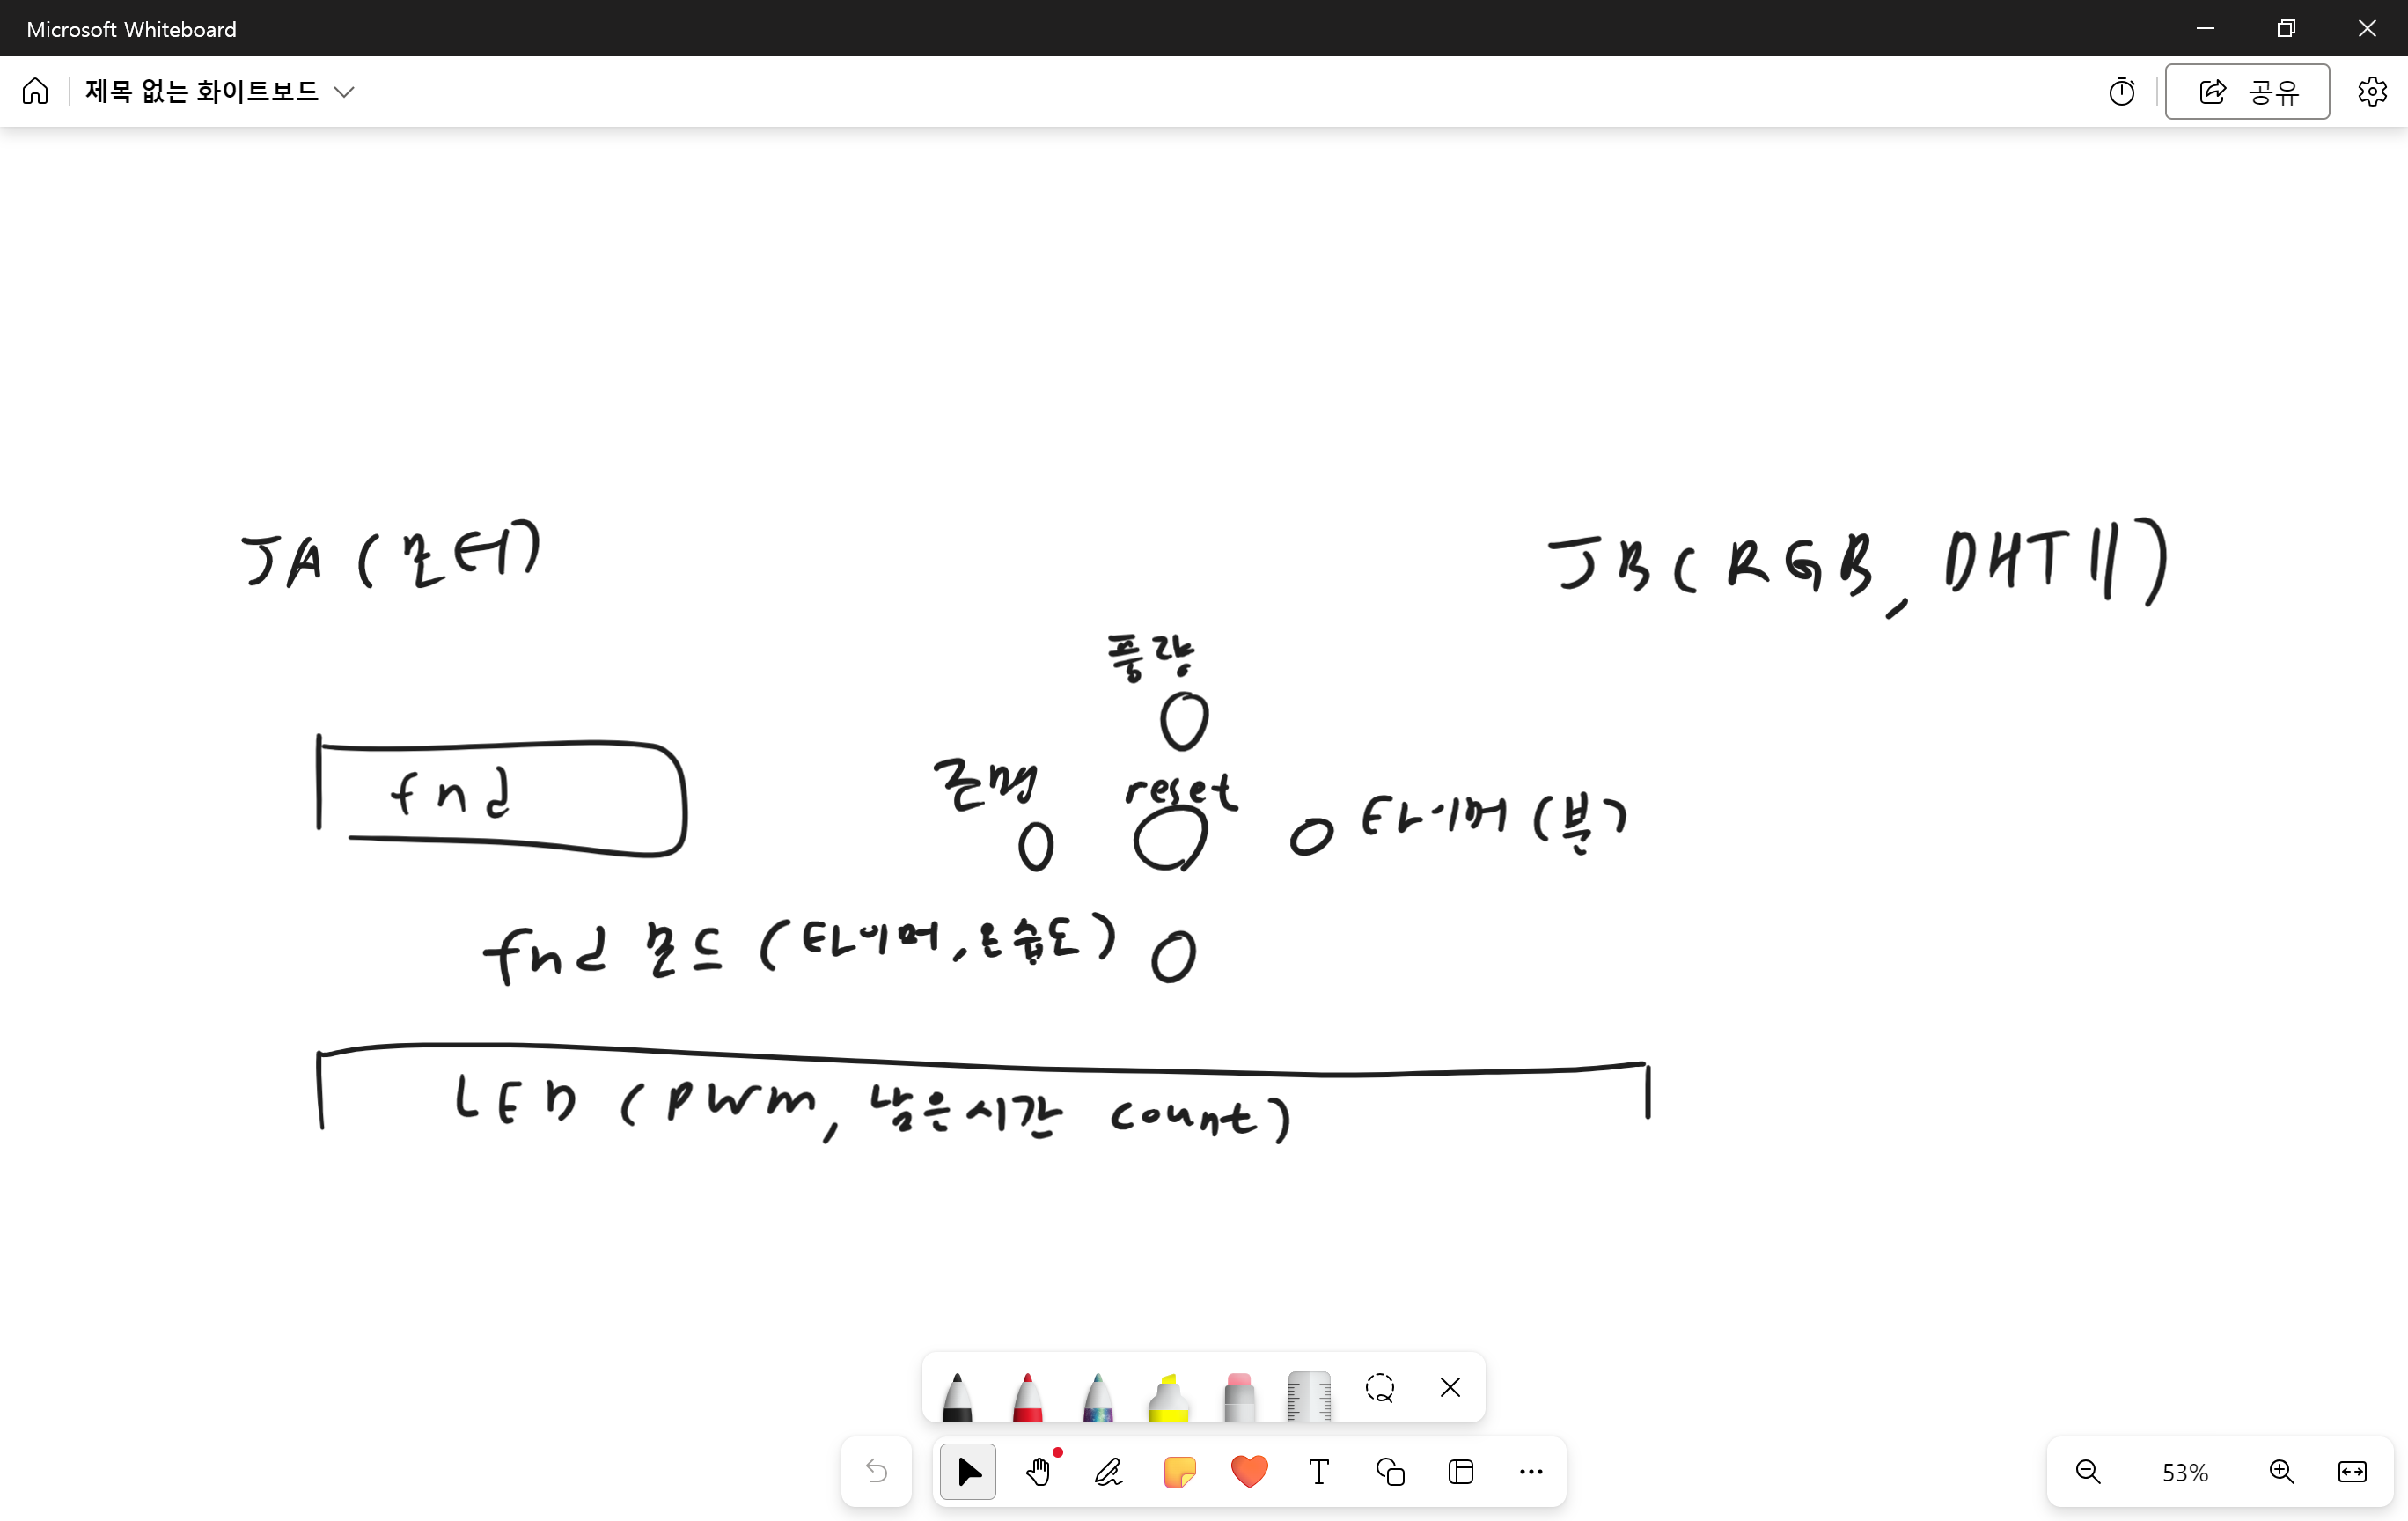 Microsoft Whiteboard
제목 없는 화이트보드
공유
JA (모터)
JB (RGB, DHT11)
풍량
fnd
조명
reset
타이머 (분)
fnd 모드 (타이머, 온습도)
LED (PWM, 남은시간 count)
53%